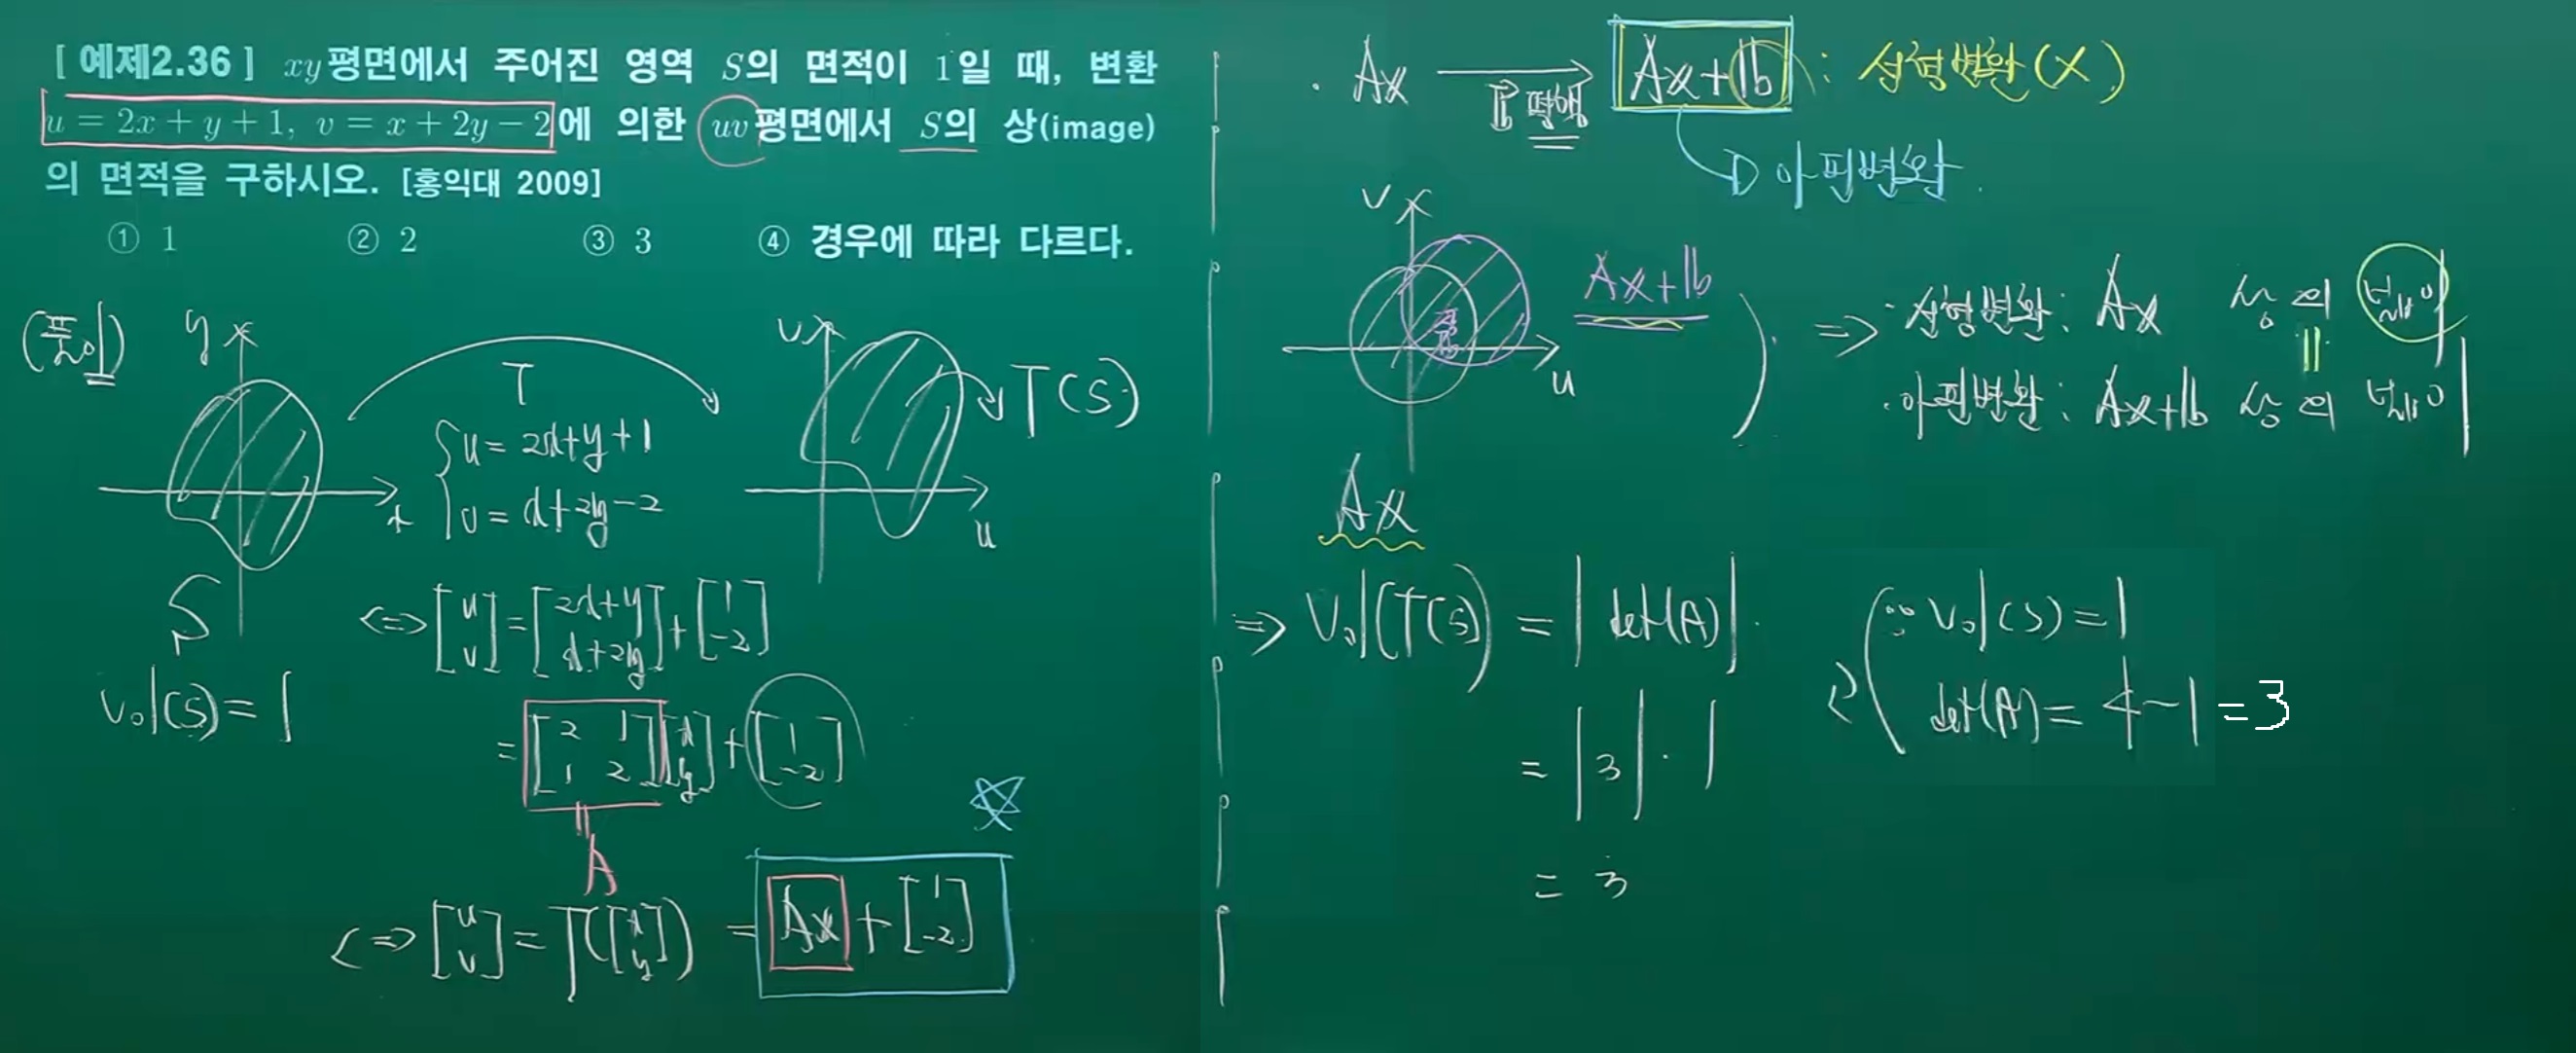 [ 예제2.36 ] xy평면에서 주어진 영역 S의 면적이 1일 때, 변환
u = 2x + y + 1, v = x + 2y − 2에 의한 uv평면에서 S의 상(image)
의 면적을 구하시오. [홍익대 2009]
① 1 ② 2 ③ 3 ④ 경우에 따라 다르다.
(풀이)
y
x
S
vol(S) = 1
T
u = 2x+y+1
v = x+2y−2
v
u
T(S)
⇔ [u v] = [2x+y x+2y] + [1 −2]
= [2 1 1 2][x y] + [1 −2]
= A
⇔ [u v] = T([x y]) = Ax + [1 −2]
· Ax → Ax+b : 선형변환(X)
b 평행
아핀변환
v
u
Ax+b
⇒ · 선형변환: Ax 상의 넓이
=
· 아핀변환: Ax+b 상의 넓이
Ax
⇒ Vol(T(S)) = |det(A)| ·
= |3| · 1
= 3
∵ Vol(S) = 1
det(A) = 4−1 = 3